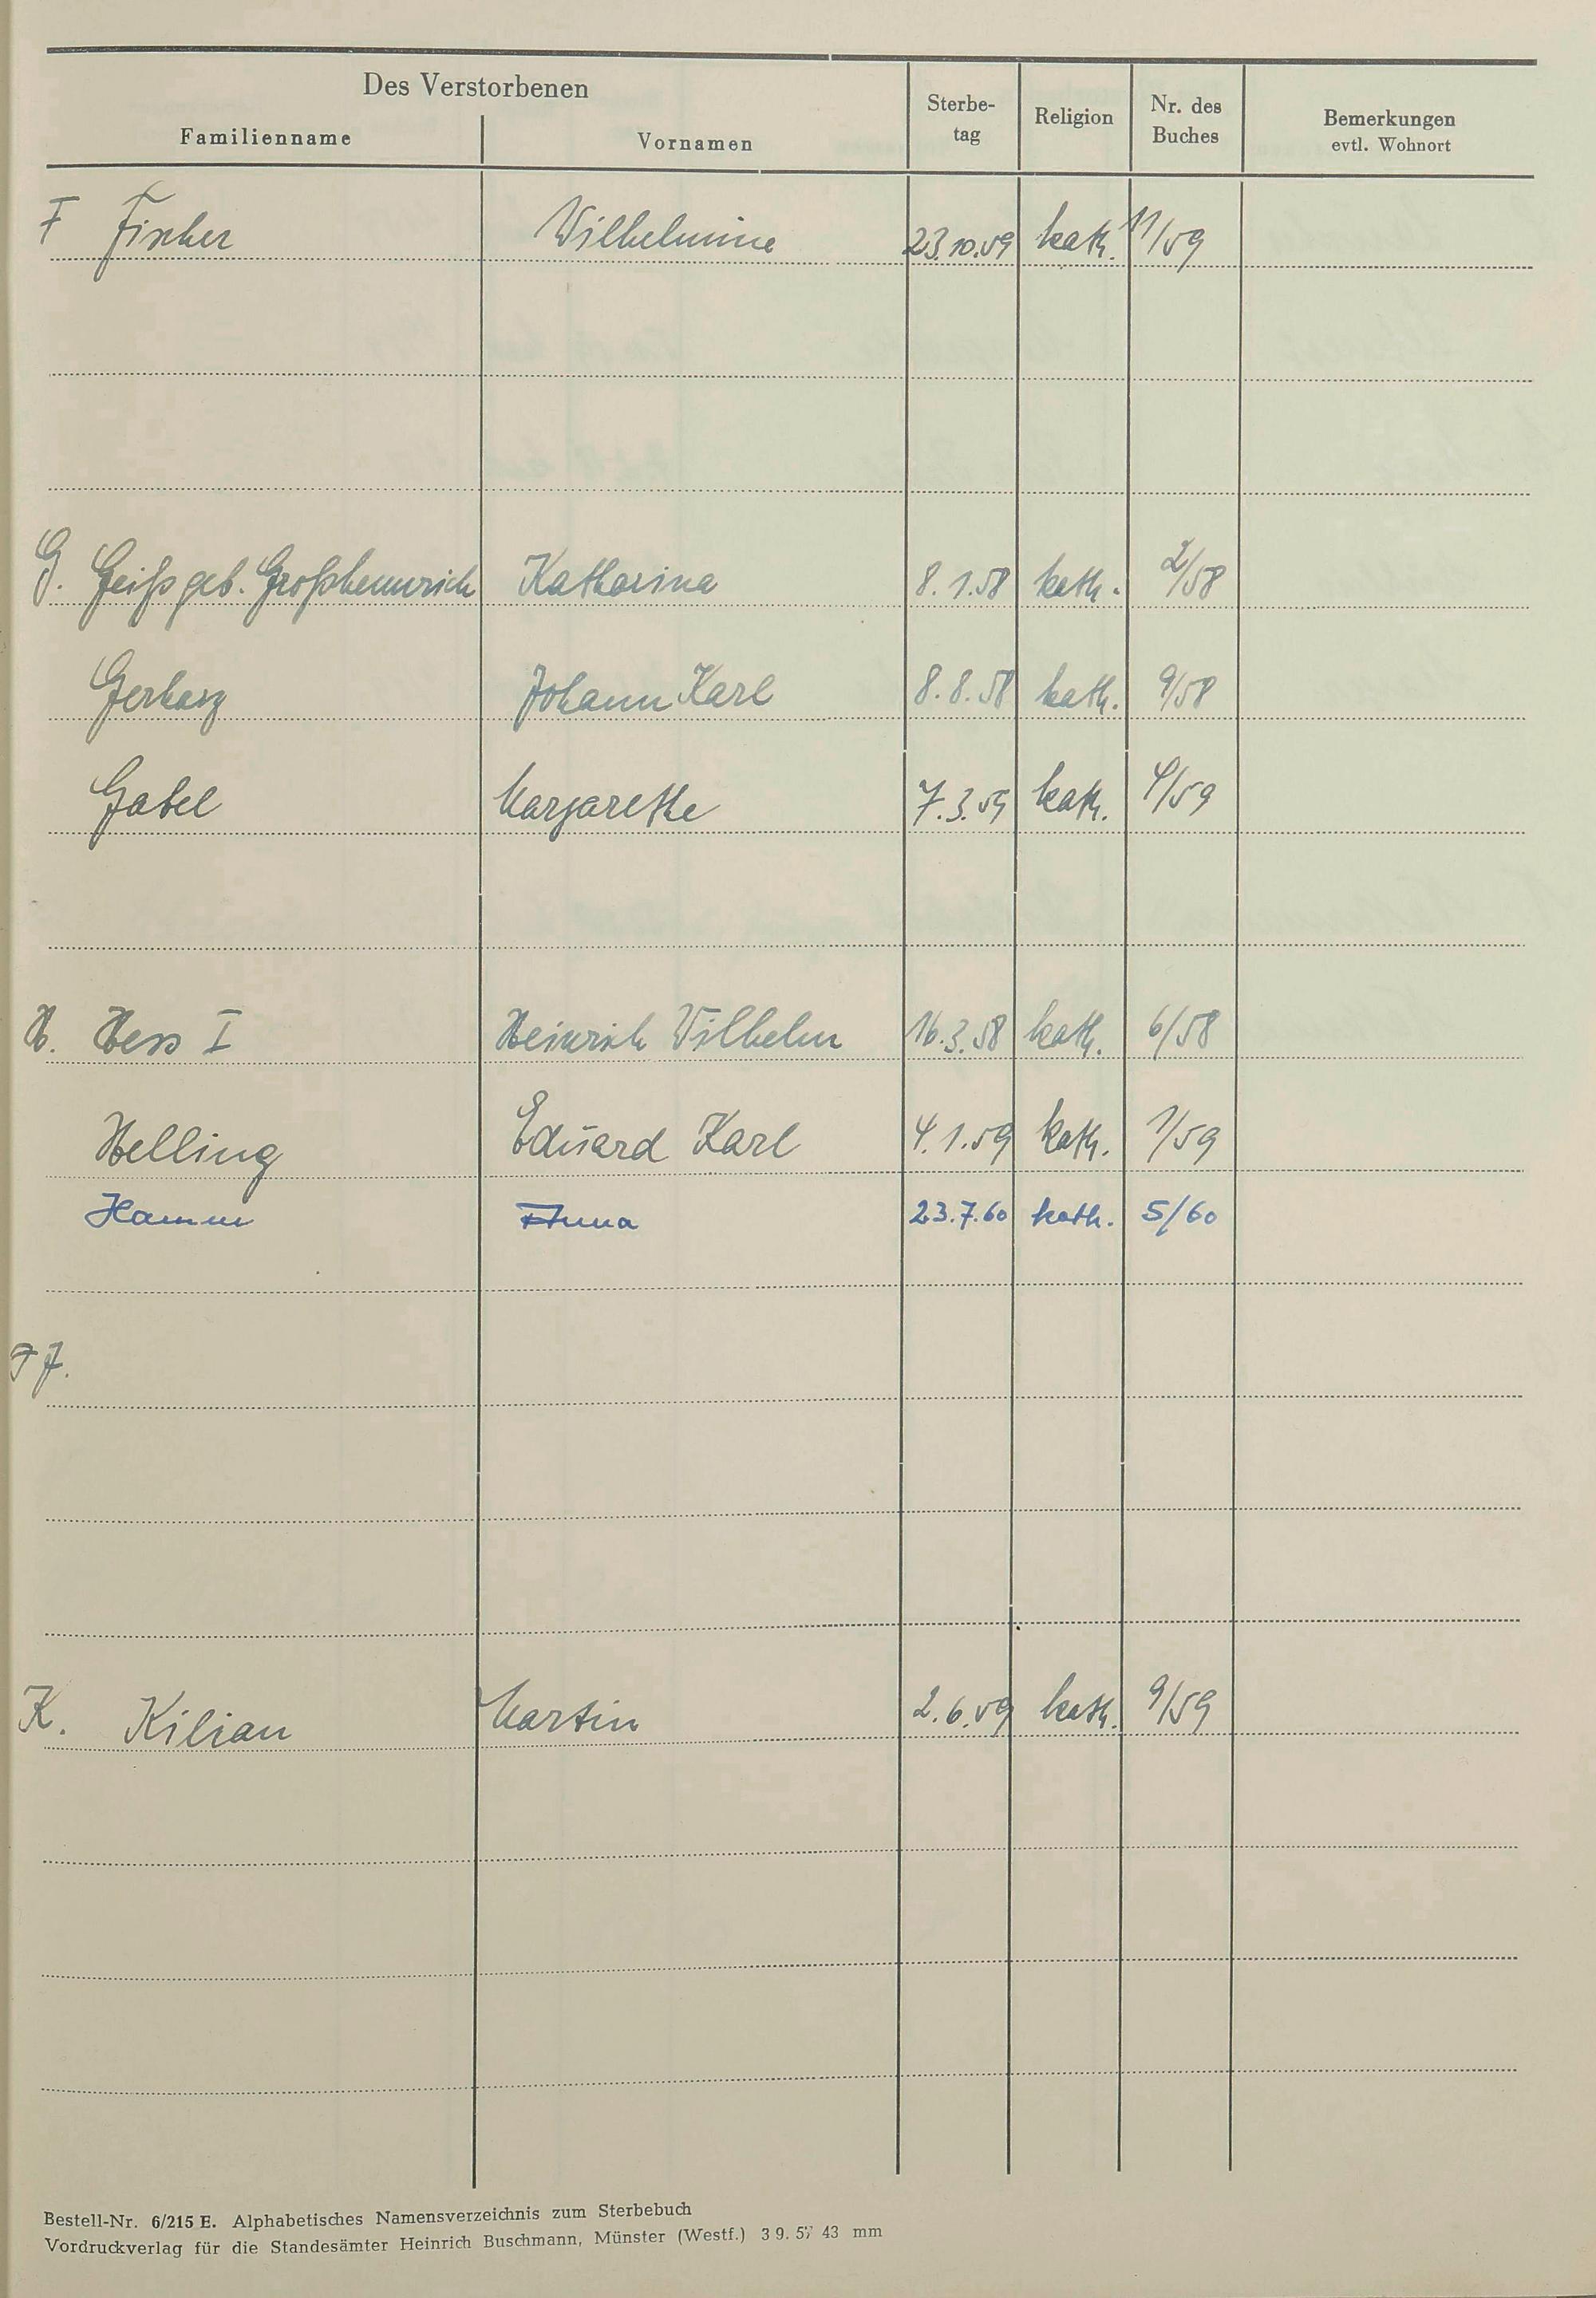 Des Verstorbenen
Familienname Vornamen Sterbe-tag Religion Nr. des Buches Bemerkungen evtl. Wohnort
F Fischer Wilhelmine 23.10.59 kath. 11/59
G. Geiß geb. Großhennrich Katharina 8.1.58 kath. 2/58
Gerharz Johann Karl 8.8.58 kath. 9/58
Gabel Margarethe 7.3.59 kath. 4/59
H. Hess I Heinrich Wilhelm 16.3.58 kath. 6/58
Helling Eduard Karl 4.1.59 kath. 1/59
Hamm Anna 23.7.60 kath. 5/60
J J.
K. Kilian Martin 2.6.59 kath. 9/59
Bestell-Nr. 6/215 E. Alphabetisches Namensverzeichnis zum Sterbebuch
Vordruckverlag für die Standesämter Heinrich Buschmann, Münster (Westf.) 3 9. 57 43 mm